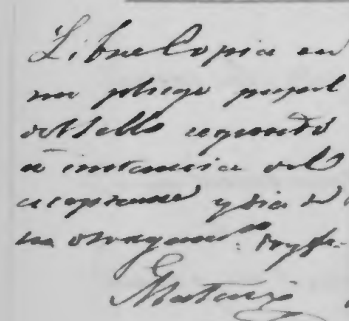 Libre Copia en
un pliego papel
del sello segundo
a instancia del
aceptante y dia de
su otorgam.to doy fe.